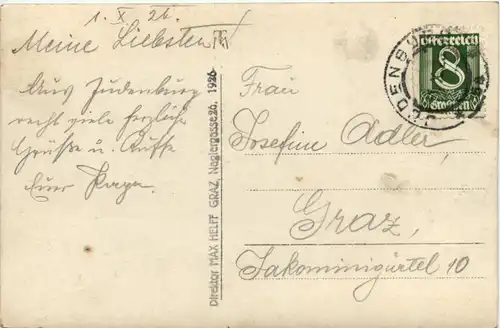 1. X. 26.
Meine Liebsten!
Aus Judenburg
recht viele herzliche
Grüße u. Küsse
Euer Papa.
Direktor MAX HELFF GRAZ, Naglergasse 26. 1926
Frau
Josefine Adler,
Graz,
Jakominigürtel 10
österreich
8
JUDENBURG